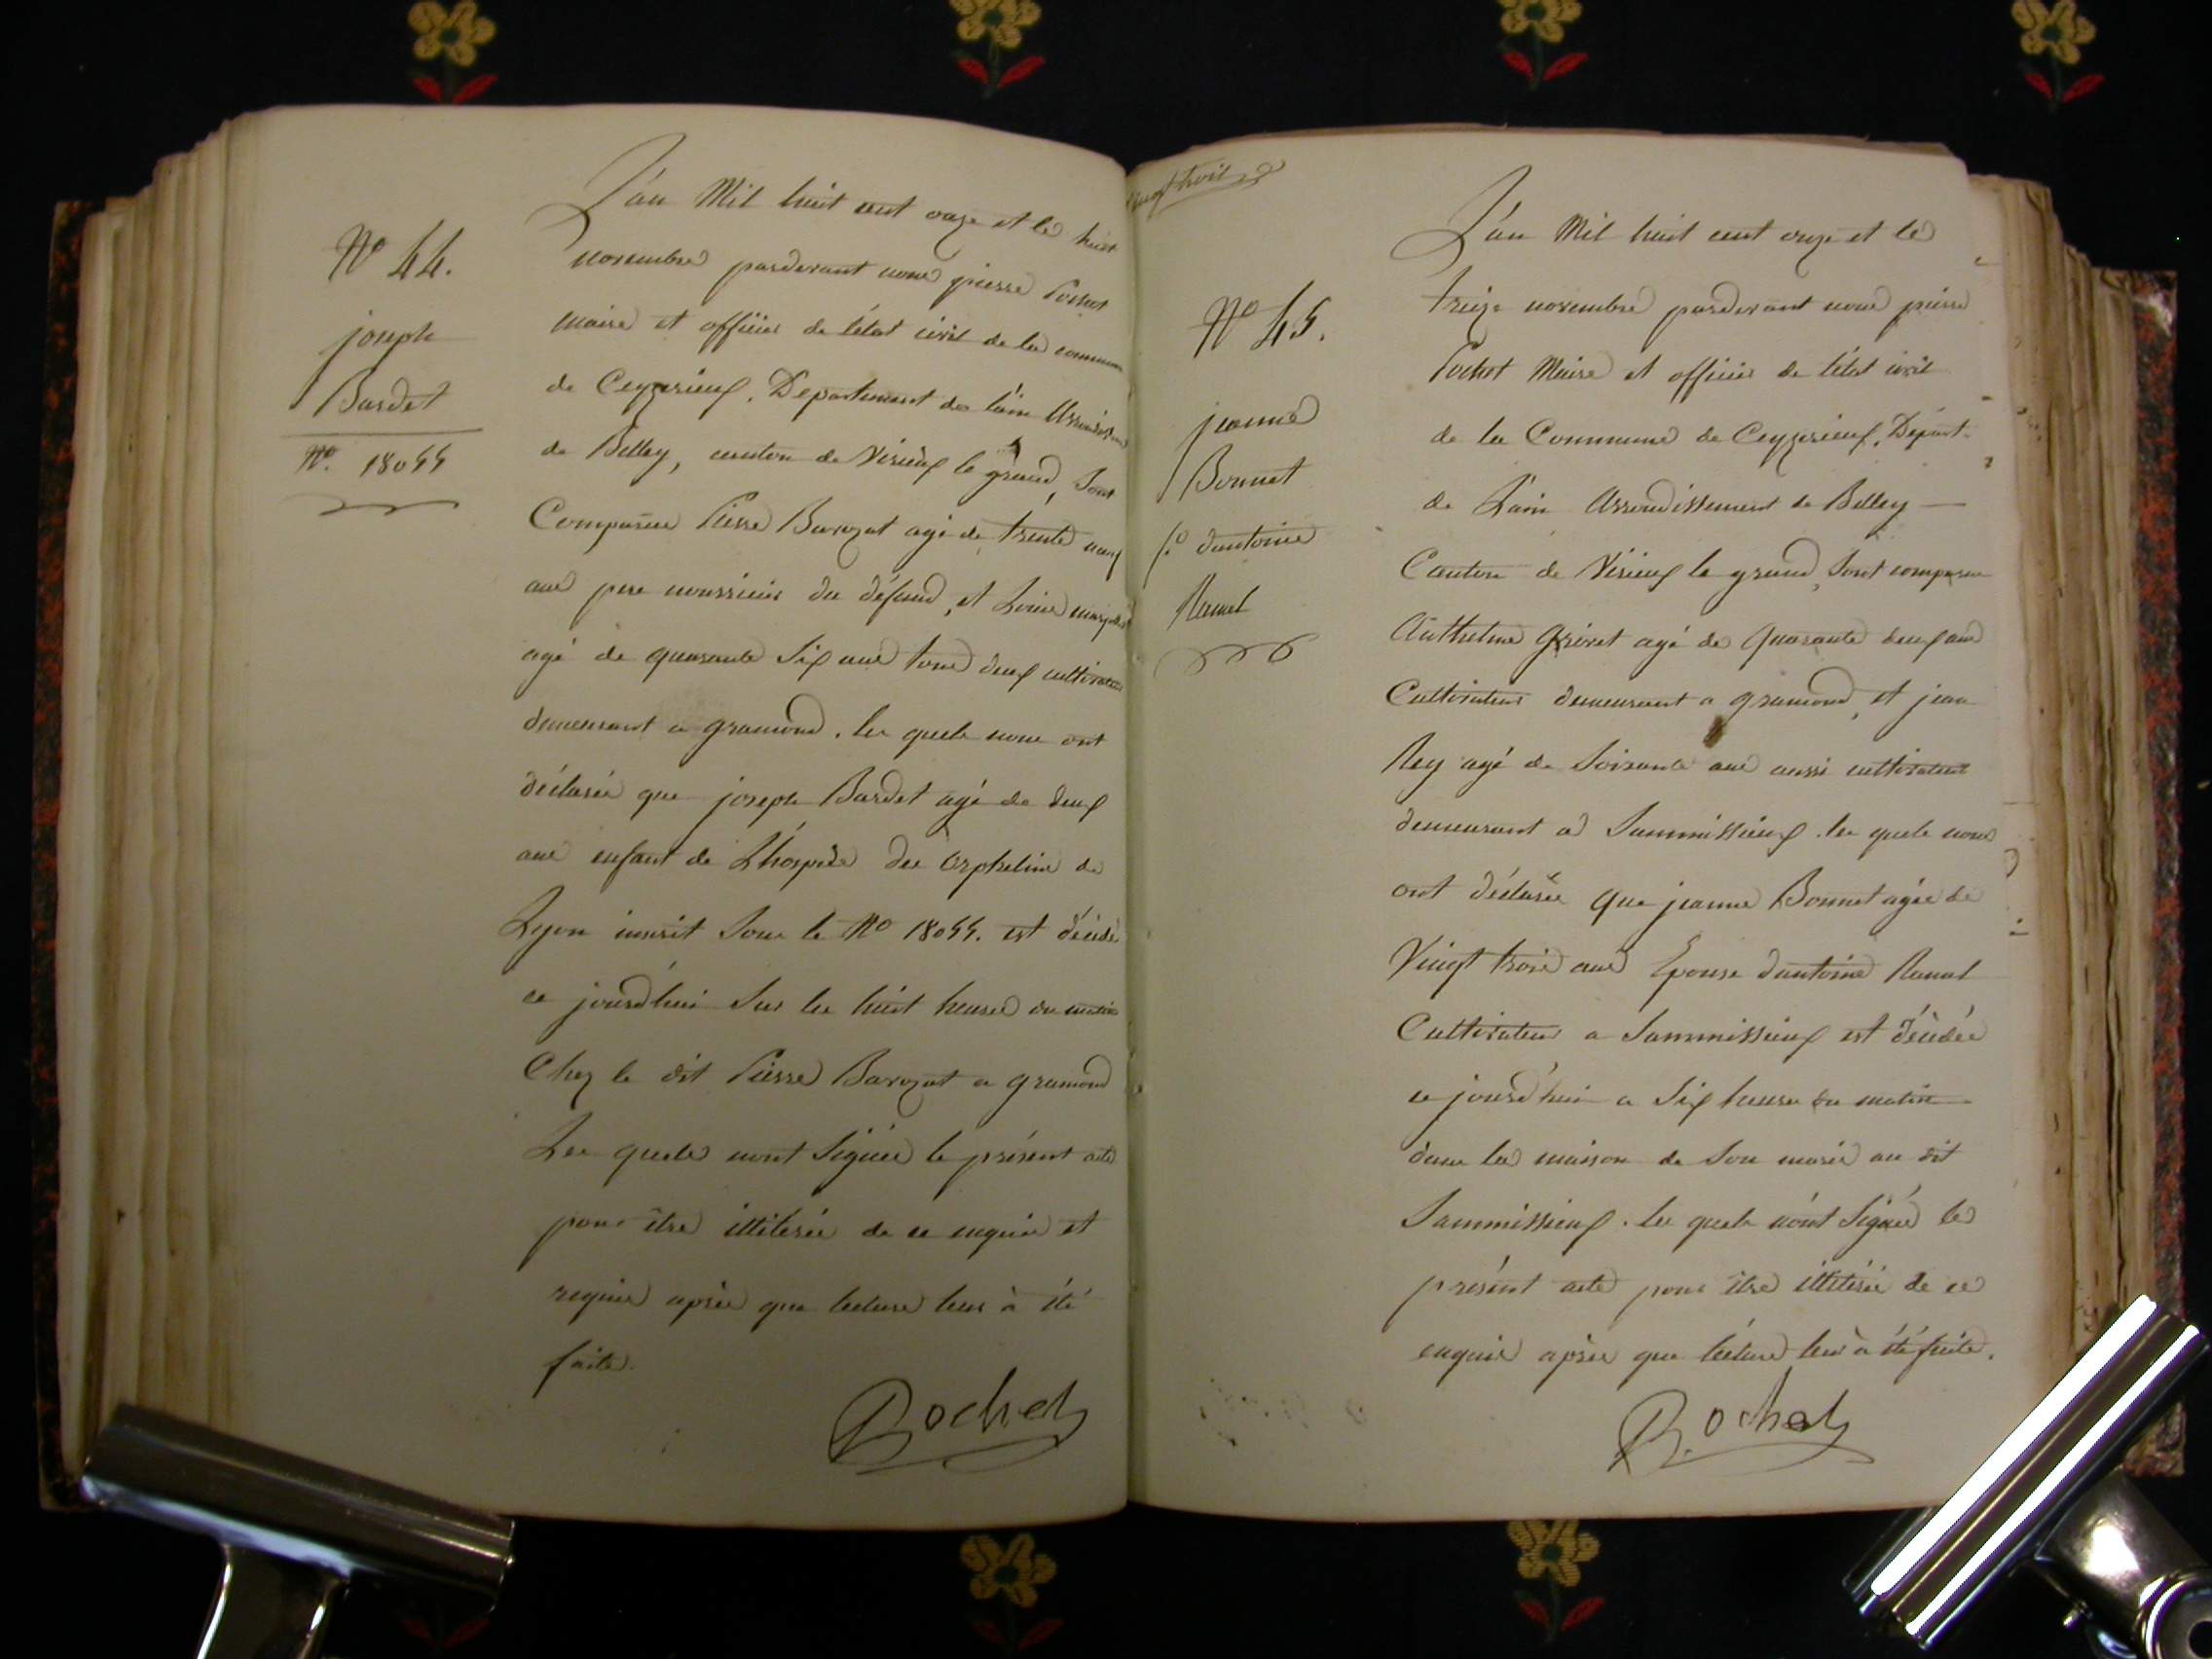 N° 44.
joseph
Bardet
N°. 18055
L'an Mil huit cent onze et le huit
novembre pardevant nous pierre Pochet
Maire et officier de l'état civil de la commune
de Ceyzerieux, Departement de l'ain Arrondissement
de Belley, canton de Virieux le grand, Sont
Comparus Pierre Barozat agé de trente neuf
ans pere nourricier du défund, et Louis
agé de quarante Six ans tous deux cultivateurs
demeurant a gramond. les quels nous ont
déclarés que joseph Bardet agé de deux
ans enfant de L'hospice des Orphelins de
Lyon inscrit Sous le N° 18055. est décédé
ce jourd'hui Sur les huit heures du matin
Chez le dit Pierre Barozat a gramond
Les quels n'ont Signés le présent acte
pour être illiterés de ce enquis et
requis après que lecture leur à été
faite.
Pochet
vingt trois
N° 45.
jeanne
Bonnet
f.e d'antoine
Ramel
L'an Mil huit cent onze et le
treize novembre pardevant nous pierre
Pochet Maire et officier de l'état civil
de la Commune de Ceyzerieux, Départ.
de L'ain Arrondissement de Belley —
Canton de Virieux le grand, Sont comparus
Anthelme Grivet agé de Quarante deux ans
Cultivateur demeurant a gramond, et jean
Rey agé de Soixante ans aussi cultivateur
demeurant a Sammissieux. les quels nous
ont déclarés que jeanne Bonnet agée de
Vingt trois ans Epouse d'antoine Ramel
Cultivateur a Sammissieux est décédée
ce jourd'hui a Six heures du matin
dans la maison de Son marie au dit
Sammissieux. les quels n'ont Signés le
présent acte pour être illiterés de ce
enquis après que lecture leur à été faite.
Pochet